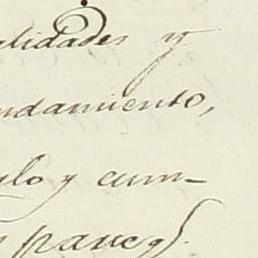 alidades y
ndamiento,
ulo y cum-